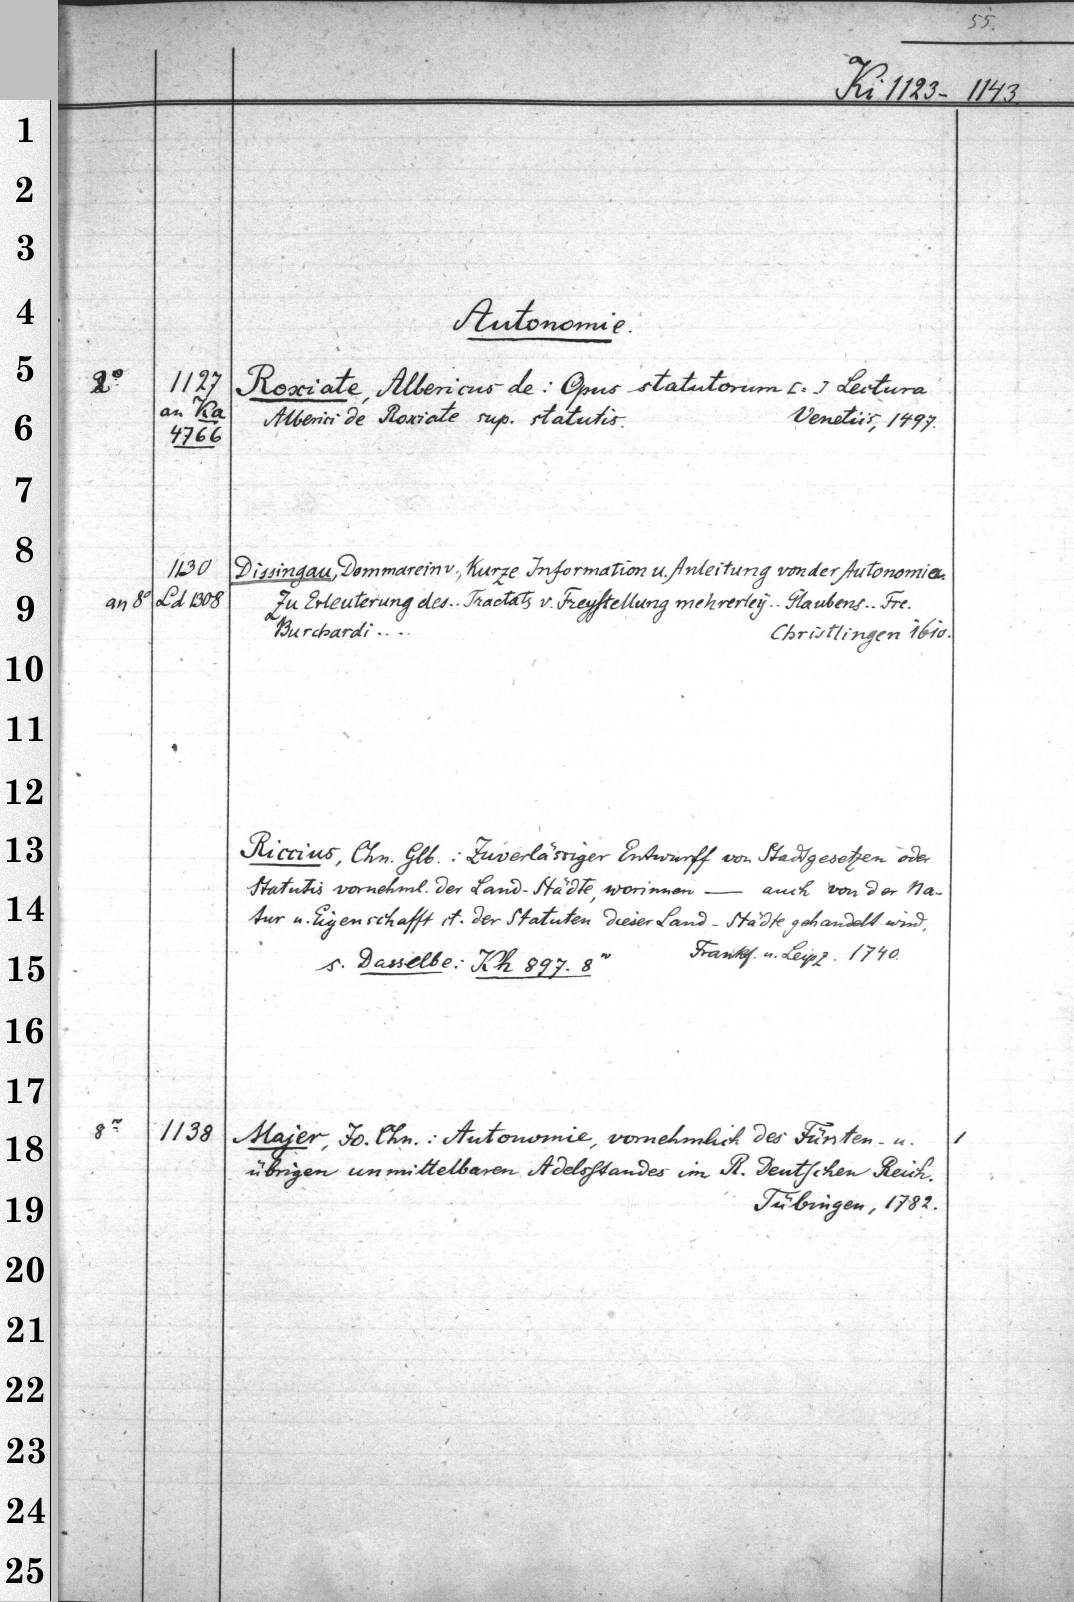 55.
Ki 1123- 1143
1
2
3
4
Autonomie.
5
2° 1127 Roxiate, Albericus de: Opus statutorum [:] Lectura
an Ka
6
Alberici de Roxiate sup. statutis. Venetiis, 1497.
4766
7
8
1130 Dissingau, Dommarein v., Kurze Information u. Anleitung von der Autonomia.
9
an 8° Ld 1308 Zu Erleuterung des.. Tractats v. Freystellung mehrerley.. Glaubens.. Fre.
Burchardi.... Christlingen 1610.
10
11
12
13
Riccius, Chn. Glb.: Zuverlässiger Entwurff von Stadtgesetzen oder
Statutis vornehml. der Land-Städte, worinnen — auch von der Na-
14
tur u. Eigenschafft der Statuten dieser Land-Städte gehandelt wird.
15
s. Dasselbe: Kh 897. 8° Frankf. u. Leipz. 1740.
16
17
8° 1138 Majer, Jo. Chn.: Autonomie, vornehmlich des Fürsten- u. 1
18
übrigen unmittelbaren Adelsstandes im R. Deutschen Reich.
19
Tübingen, 1782.
20
21
22
23
24
25